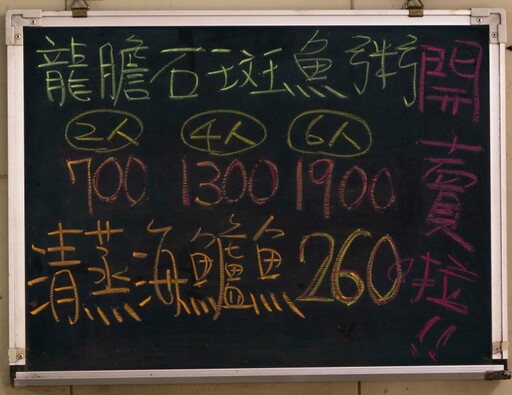 龍膽石斑魚粥
2人 4人 6人
700 1300 1900
清蒸海鱸魚 260
開賣啦!!